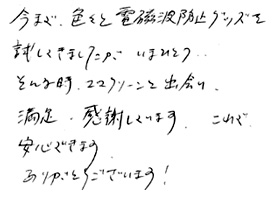 今まで、色々と電磁波防止グッズを
試してきましたが いまひとつ..
そんな時、ココクリーンと出会い、
満足・感謝しています。これで、
安心できます
ありがとうございます！